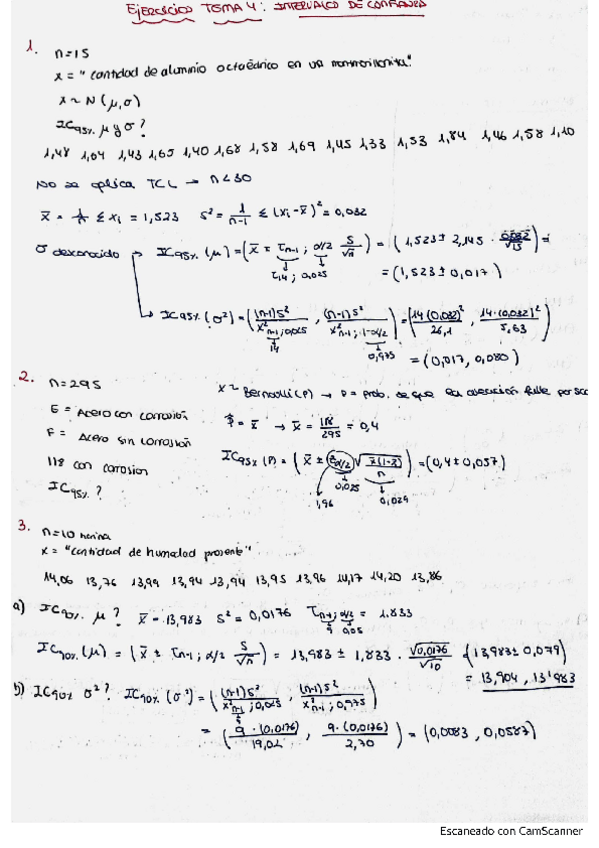 EJERCICIOS TEMA 4: INTERVALOS DE CONFIANZA
1. n=15
x = "cantidad de aluminio octaédrico en una montmorillonita"
x ~ N(μ,σ)
IC95% μ y σ?
1,48 1,04 1,43 1,65 1,40 1,68 1,58 1,69 1,45 1,33 1,53 1,84 1,46 1,58 1,10
No se aplica TCL → n<30
x̄ = 1/n Σ xi = 1,523 s² = 1/n-1 Σ (xi - x̄)² = 0,032
σ desconocido → IC95% (μ) = (x̄ ± tn-1; α/2 s/√n) = (1,523 ± 2,145 · 0,032/√15) =
t14; 0,025
= (1,523 ± 0,017)
→ IC95% (σ²) = ((n-1)s²/χ²n-1; 0,025 , (n-1)s²/χ²n-1; 1-α/2) = (14(0,032)²/26,1 , 14·(0,032)²/5,63)
14 0,975
= (0,017, 0,080)
2. n=295
x ~ Bernoulli(P) → P = prob. de que
E = Acero con corrosión
F = Acero sin corrosión
p̂ = x̄ → x̄ = 118/295 = 0,4
118 con corrosion
IC95% (P) = (x̄ ± zα/2 √x̄(1-x̄)/n) = (0,4 ± 0,057)
IC95%?
1,96 0,025 0,029
3. n=10 harina
x = "cantidad de humedad presente"
14,06 13,76 13,99 13,94 13,94 13,95 13,96 14,17 14,20 13,86
a) IC90% μ? x̄ = 13,983 s² = 0,0176 tn-1; α/2 = 1.833
9 0,05
IC90% (μ) = (x̄ ± tn-1; α/2 s/√n) = 13,983 ± 1,833 · √0,0176/√10 = (13,983 ± 0,079)
= 13,904, 13'983
b) IC90% σ²? IC90% (σ²) = ((n-1)s²/χ²n-1; 0,025 , (n-1)s²/χ²n-1; 0,975)
= (9·(0,0176)/19,02 , 9·(0,0176)/2,70) = (0,0083, 0,0587)
Escaneado con CamScanner